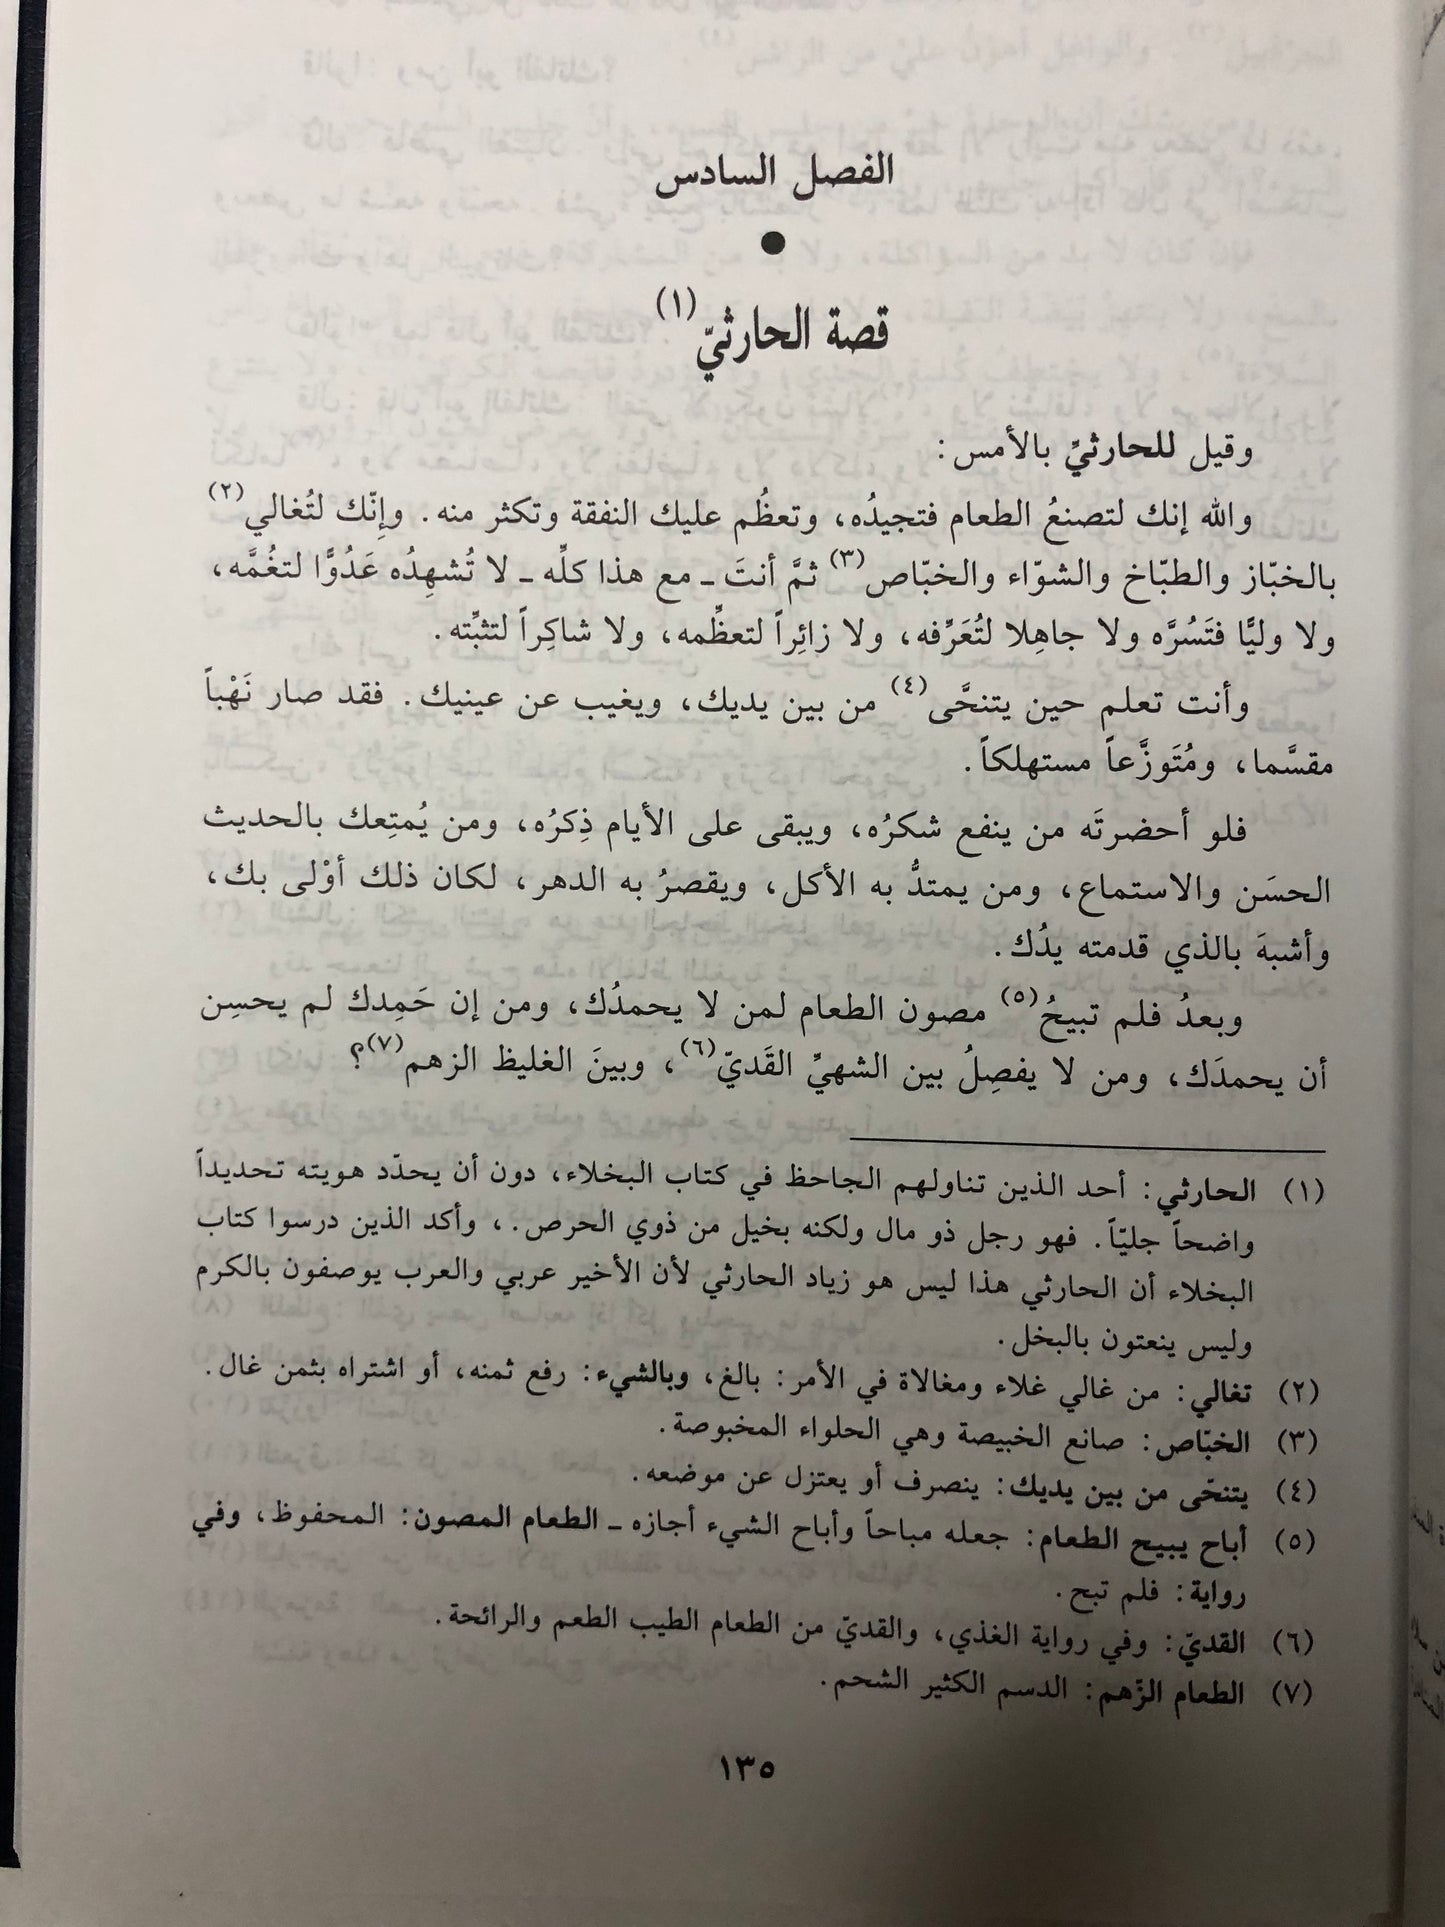 الفصل السادس
●
قصة الحارثيّ(١)
وقيل للحارثيِّ بالأمس:
والله إنك لتصنعُ الطعام فتجيدُه، وتعظُم عليك النفقة وتكثر منه. وإِنّك لتُغالي(٢)
بالخبّاز والطبّاخ والشوّاء والخبّاص(٣) ثمَّ أنتَ ـ مع هذا كلِّه ـ لا تُشهِدُه عَدُوًّا لتغُمَّه،
ولا وليًّا فتَسُرَّه ولا جاهِلا لتُعَرِّفه، ولا زائِراً لتعظِّمه، ولا شاكِراً لتثبِّته.
وأنت تعلم حين يتنحَّى(٤) من بين يديك، ويغيب عن عينيك. فقد صار نَهْباً
مقسَّما، ومُتَوزَّعاً مستهلكاً.
فلو أحضرتَه من ينفع شكرُه، ويبقى على الأيام ذِكرُه، ومن يُمتِعك بالحديث
الحسَن والاستماع، ومن يمتدُّ به الأكل، ويقصرُ به الدهر، لكان ذلك أوْلى بك،
وأشبهَ بالذي قدمته يدُك.
وبعدُ فلم تبيحُ(٥) مصون الطعام لمن لا يحمدُك، ومن إن حَمِدك لم يحسِن
أن يحمدَك، ومن لا يفصِلُ بين الشهيِّ القَديّ(٦)، وبينَ الغليظ الزهم(٧)؟
(١) الحارثي: أحد الذين تناولهم الجاحظ في كتاب البخلاء، دون أن يحدّد هويته تحديداً
واضحاً جليّاً. فهو رجل ذو مال ولكنه بخيل من ذوي الحرص.، وأكد الذين درسوا كتاب
البخلاء أن الحارثي هذا ليس هو زياد الحارثي لأن الأخير عربي والعرب يوصفون بالكرم
وليس ينعتون بالبخل.
(٢) تغالي: من غالي غلاء ومغالاة في الأمر: بالغ، وبالشيء: رفع ثمنه، أو اشتراه بثمن غال.
(٣) الخبّاص: صانع الخبيصة وهي الحلواء المخبوصة.
(٤) يتنحّى من بين يديك: ينصرف أو يعتزل عن موضعه.
(٥) أباح يبيح الطعام: جعله مباحاً وأباح الشيء أجازه ـ الطعام المصون: المحفوظ، وفي
رواية: فلم تبح.
(٦) القديّ: وفي رواية الغذي، والقديّ من الطعام الطيب الطعم والرائحة.
(٧) الطعام الزّهم: الدسم الكثير الشحم.
١٣٥